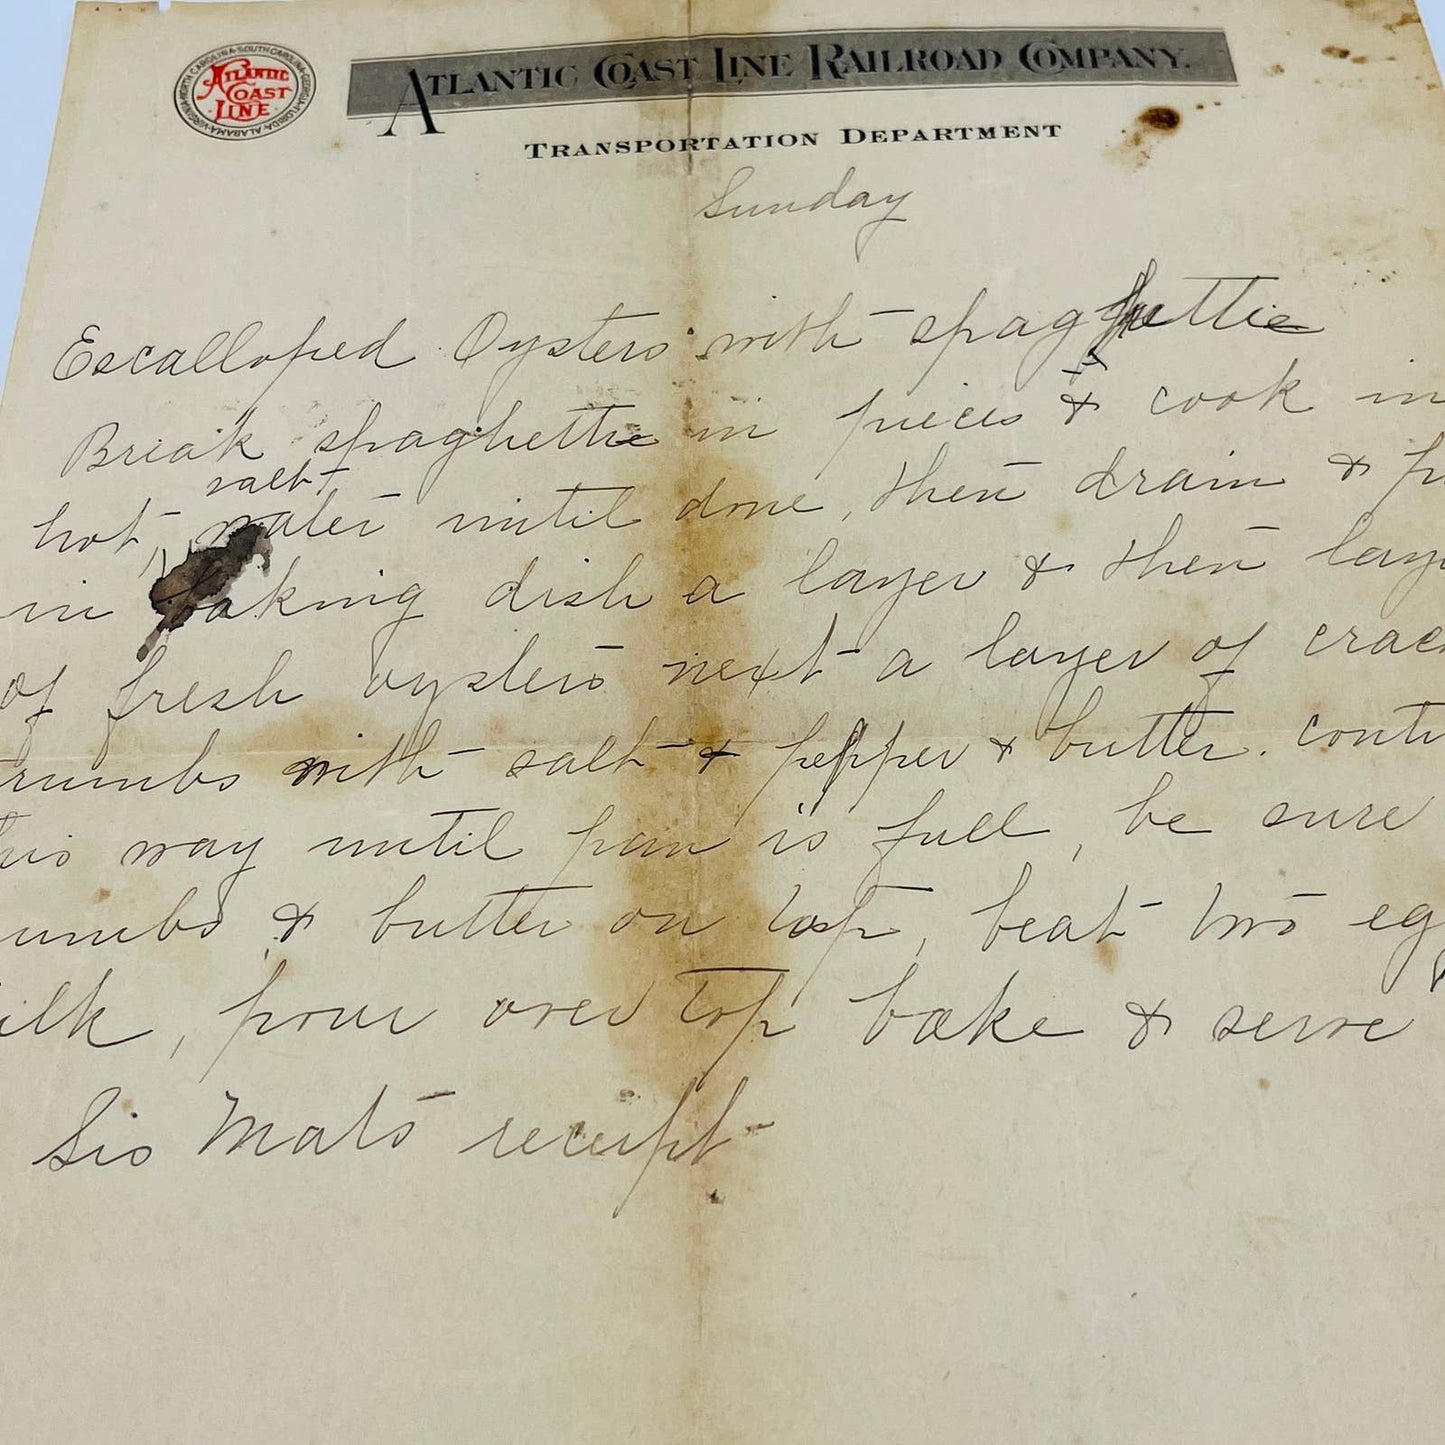 VIRGINIA-NORTH CAROLINA-SOUTH CAROLINA-GEORGIA-FLORIDA-ALABAMA
ATLANTIC
COAST
LINE
ATLANTIC COAST LINE RAILROAD COMPANY.
TRANSPORTATION DEPARTMENT
Sunday
Escalloped Oysters with spaghettie
Break spaghettie in pieces & cook in
salt
hot, water until done, then drain & pu
in baking dish a layer & then laye
of fresh oysters next a layer of crac
rumbs with salt & pepper & butter. conti
his way until pan is full, be sure
umbs & butter on top, beat two egg
ilk, pour over top bake & serve
Sis Mat's receipt